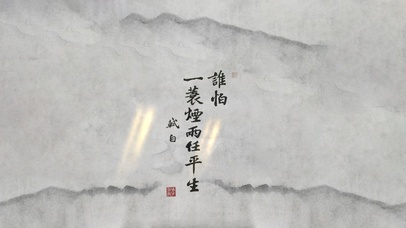 誰怕
一蓑煙雨任平生
軾自